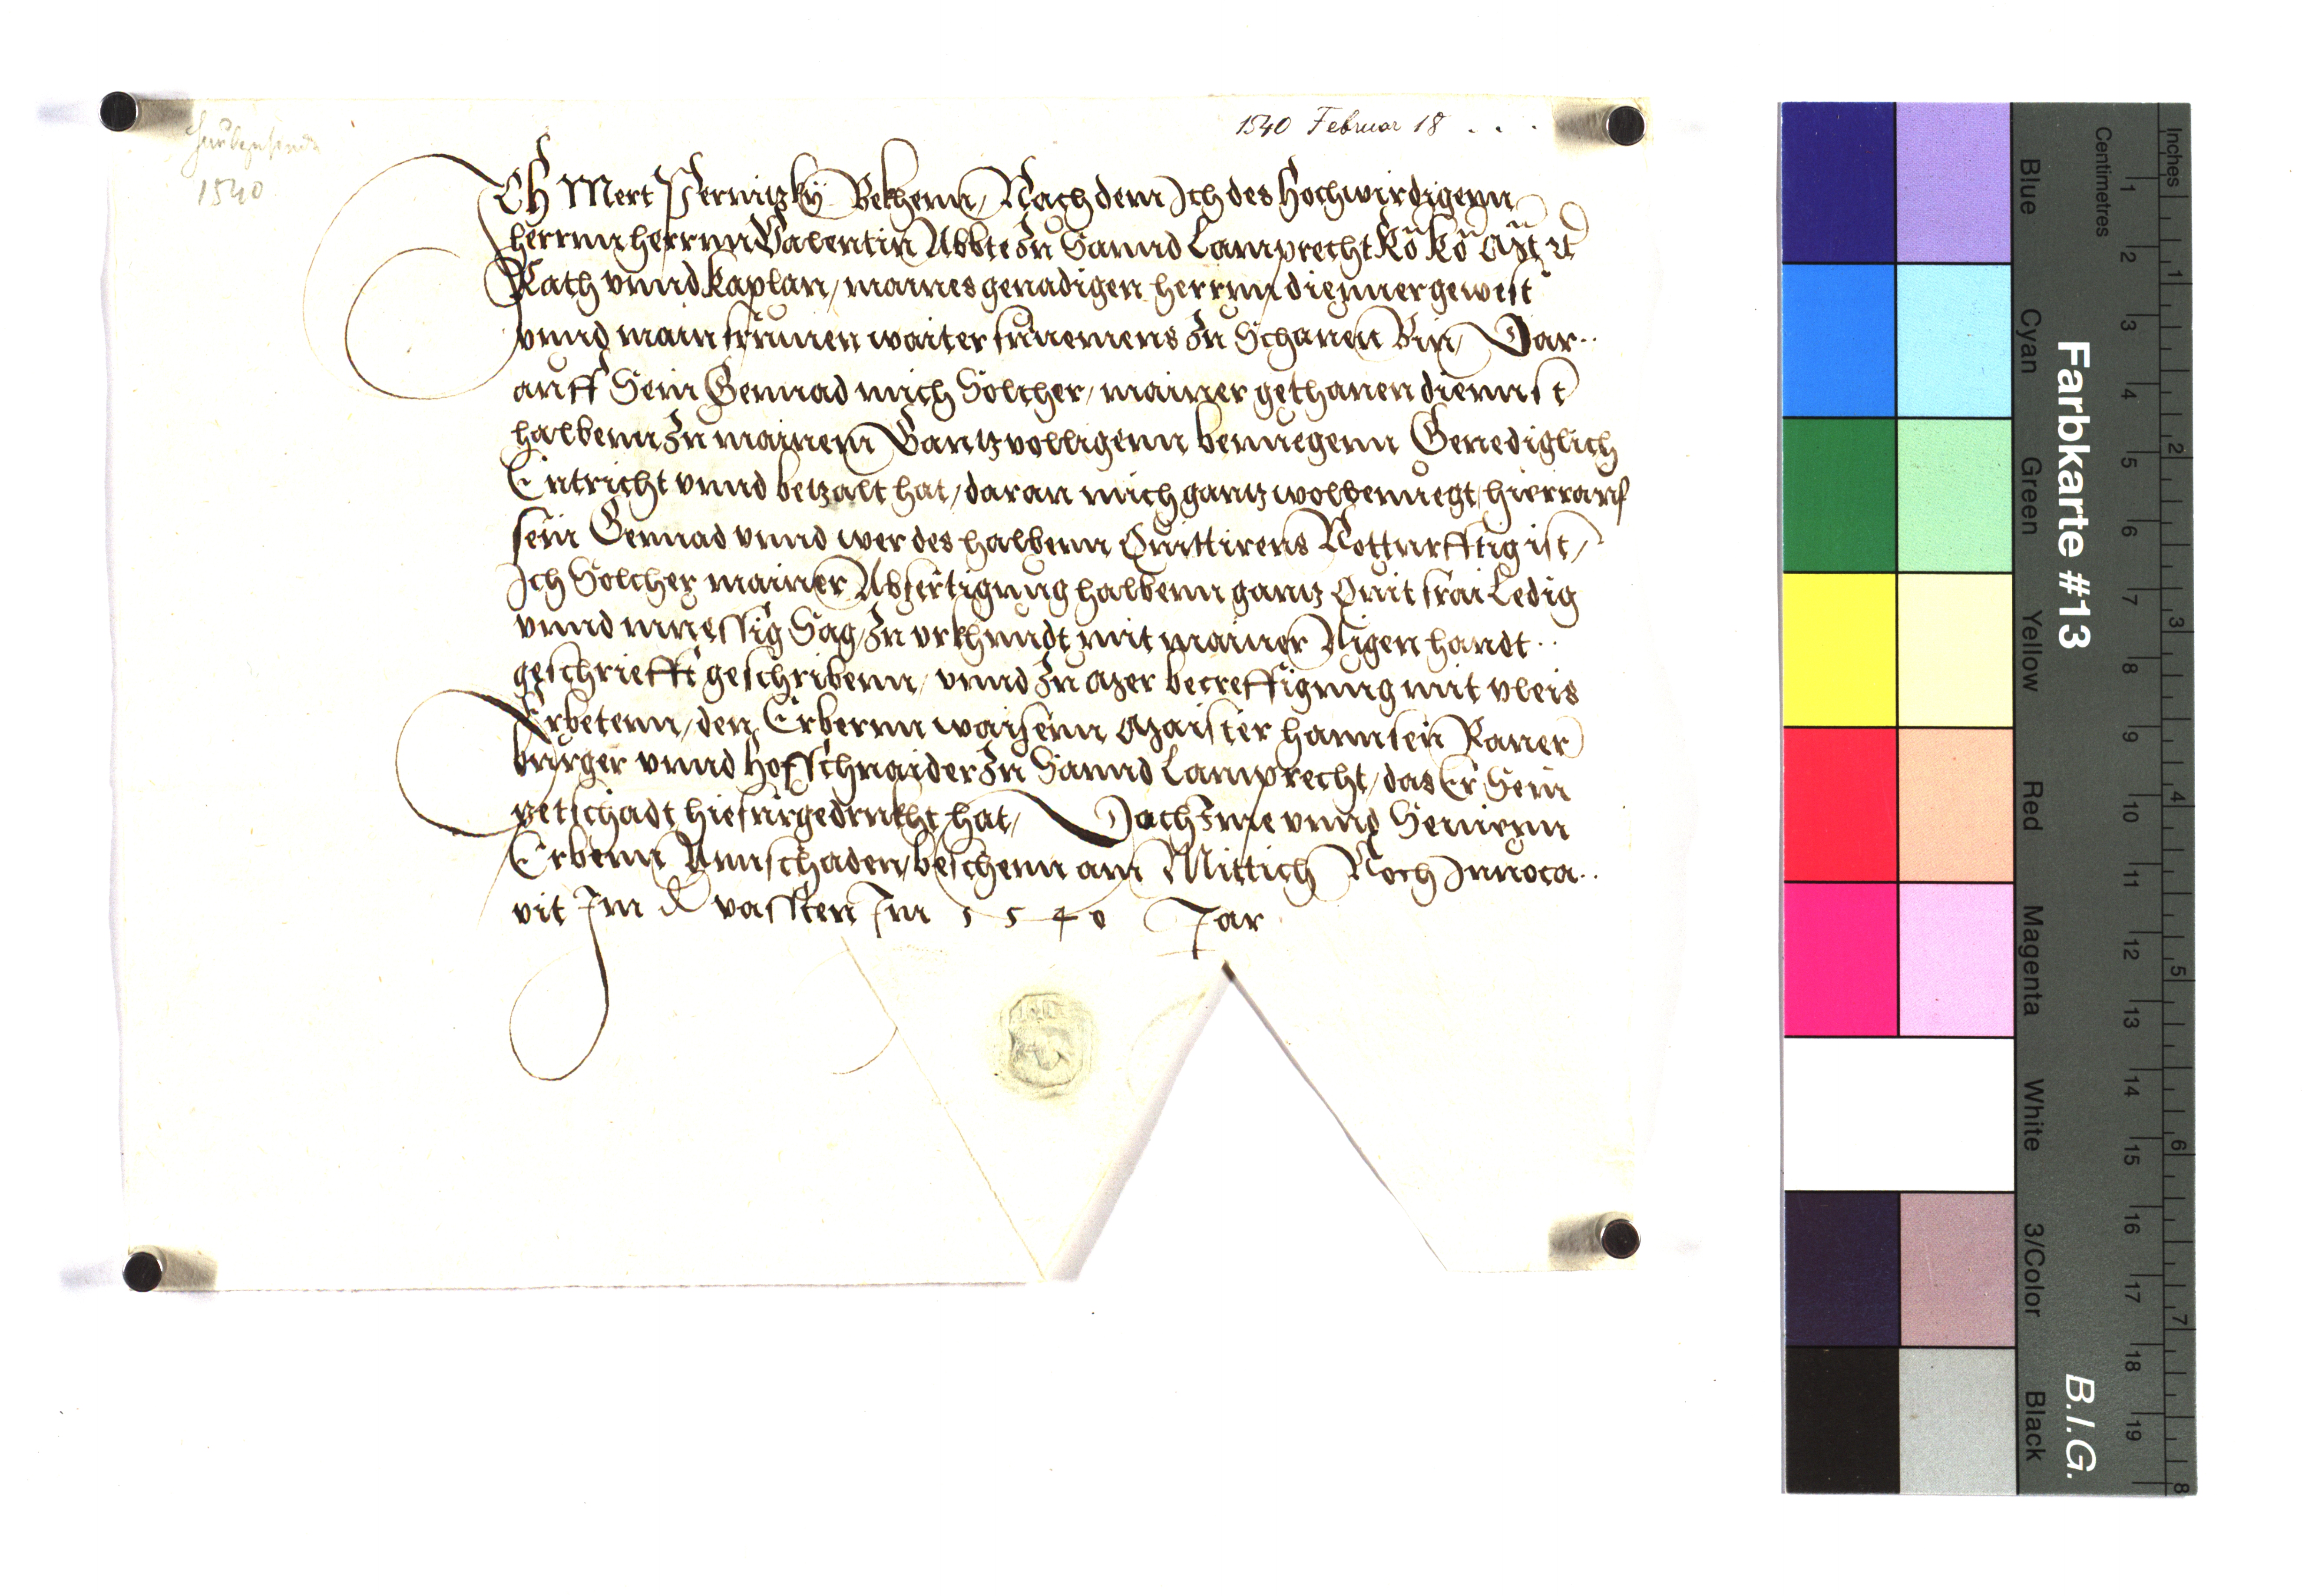 1540 Februar 18 . . .
1540
ICh Mert Pernitzky Bekhenn, Nach dem Ich des Hochwirdigenn
herrnn herrnn Valentin Abbte Zu Sannd Lamprecht Rö Kö Mt
Rath vnnd Kaplan, maines genadigen herrnn diennergewest
vnnd main frumen waiter fürnemens Zu Schauen Bin, Dar..
auff Sein Gennad mich Solcher, mainer gethanen diennst
halbenn Zu mainem Gantz volligenn benuegenn Genediglich
Entricht vnnd betzalt hat, daran mich gantz wolbenuegt, hierrauf
sein Gennad vnnd wer des halbenn Quittirens Notturfftig ist,
Ich Solcher mainer Abfertigung halbenn gantz Quit frai Ledig
vnnd muessig Sag, Zu vrkhundt mit mainer Aigen handt..
geschriefft geschribenn, vnnd Zu mer becreffigung mit vleis
Erbetenn, den Erbernn waisenn Maister hannsen Raner
burger vnnd Hoffschnaider Zu Sannd Lamprecht, das Er Sein
petschadt hiefürgedrukht hat, Doch Ime vnnd Seinenn
Erbenn Annschaden, beschenn am Mittich Noch Inuoca..
vit Im d vassten Im 1540 Jar
Farbkarte #13
B.I.G.
Blue Cyan Green Yellow Red Magenta White 3/Color Black
Centimetres 1 2 3 4 5 6 7 8 9 10 11 12 13 14 15 16 17 18 19
Inches 1 2 3 4 5 6 7 8